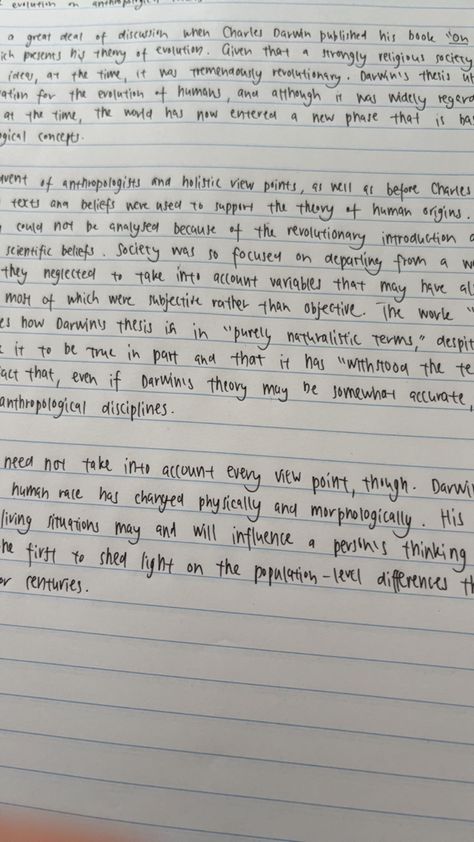 evolution on anthropological
a great deal of discussion when Charles Darwin published his book "On
ich presents his theory of evolution. Given that a strongly religious society
ideas, at the time, it was tremendously revolutionary. Darwin's thesis ut
ation for the evolution of humans, and although it was widely regard
at the time, the world has now entered a new phase that is ba
gical concepts.
vent of anthropologists and holistic view points, as well as before Charles
texts and beliefs were used to support the theory of human origins.
could not be analysed because of the revolutionary introduction o
scientific beliefs. Society was so focused on departing from a w
they neglected to take into account variables that may have al
most of which were subjective rather than objective. The work "
es how Darwin's thesis is in "purely naturalistic terms," despit
it to be true in part and that it has "withstood the te
act that, even if Darwin's theory may be somewhat accurate,
anthropological disciplines.
need not take into account every view point, though. Darwi
human race has changed physically and morphologically. His
living situations may and will influence a person's thinking
he first to shed light on the population-level differences th
or centuries.